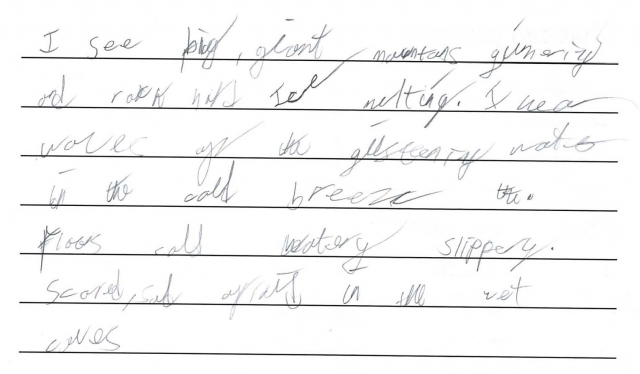 I see big, giant mountans glimering
and rock hills Ice melting. I hear
waves of the glistening water
in the cold breeze the.
Floors cold watery slippery.
Scared, sad afraid in the wet
caves